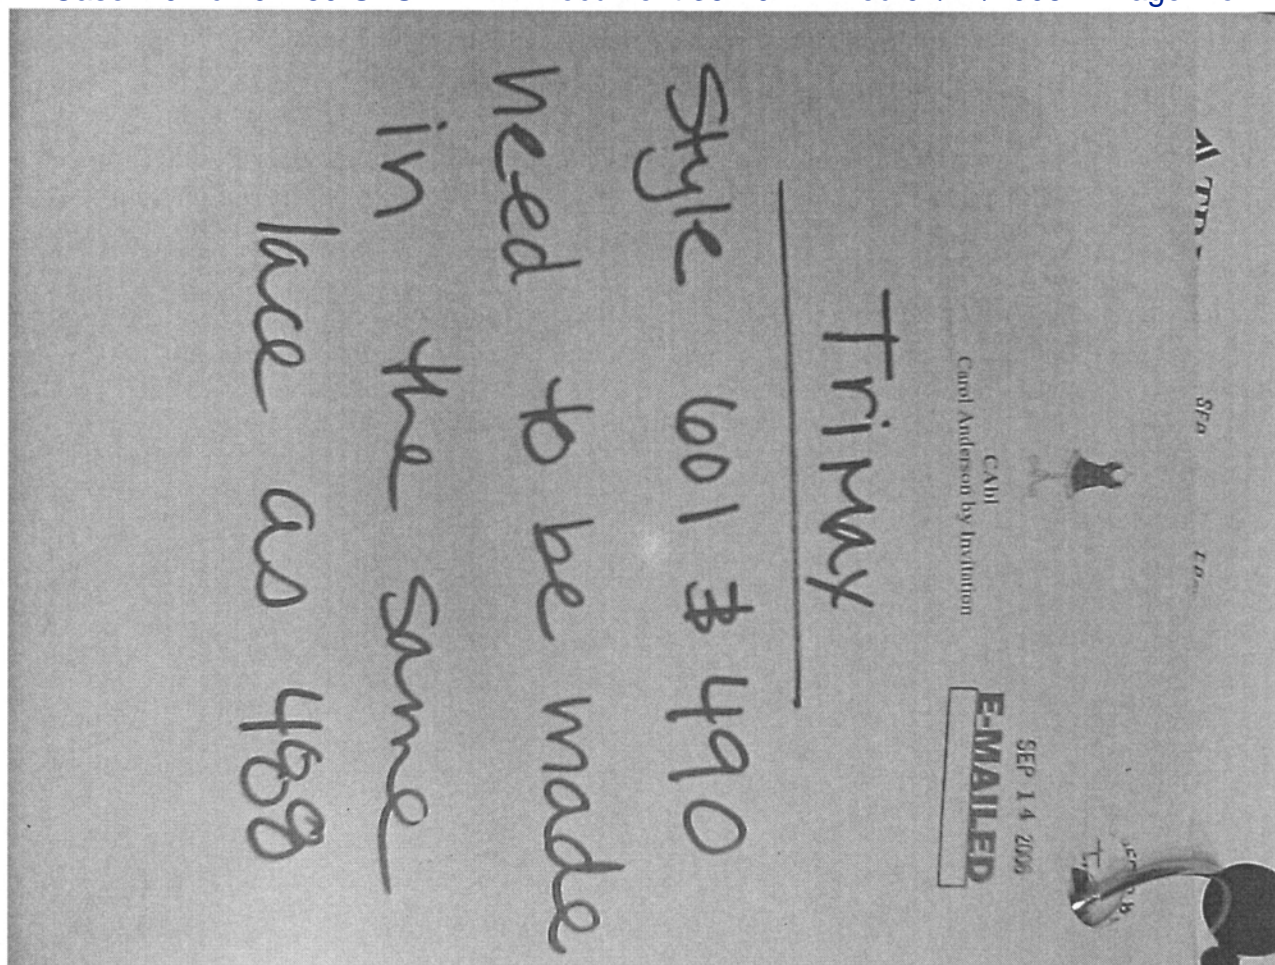 SEP 14 2006
E-MAILED
CAbi
Carol Anderson by Invitation
TriMax
Style 601 & 490
need to be made
in the same
lace as 488